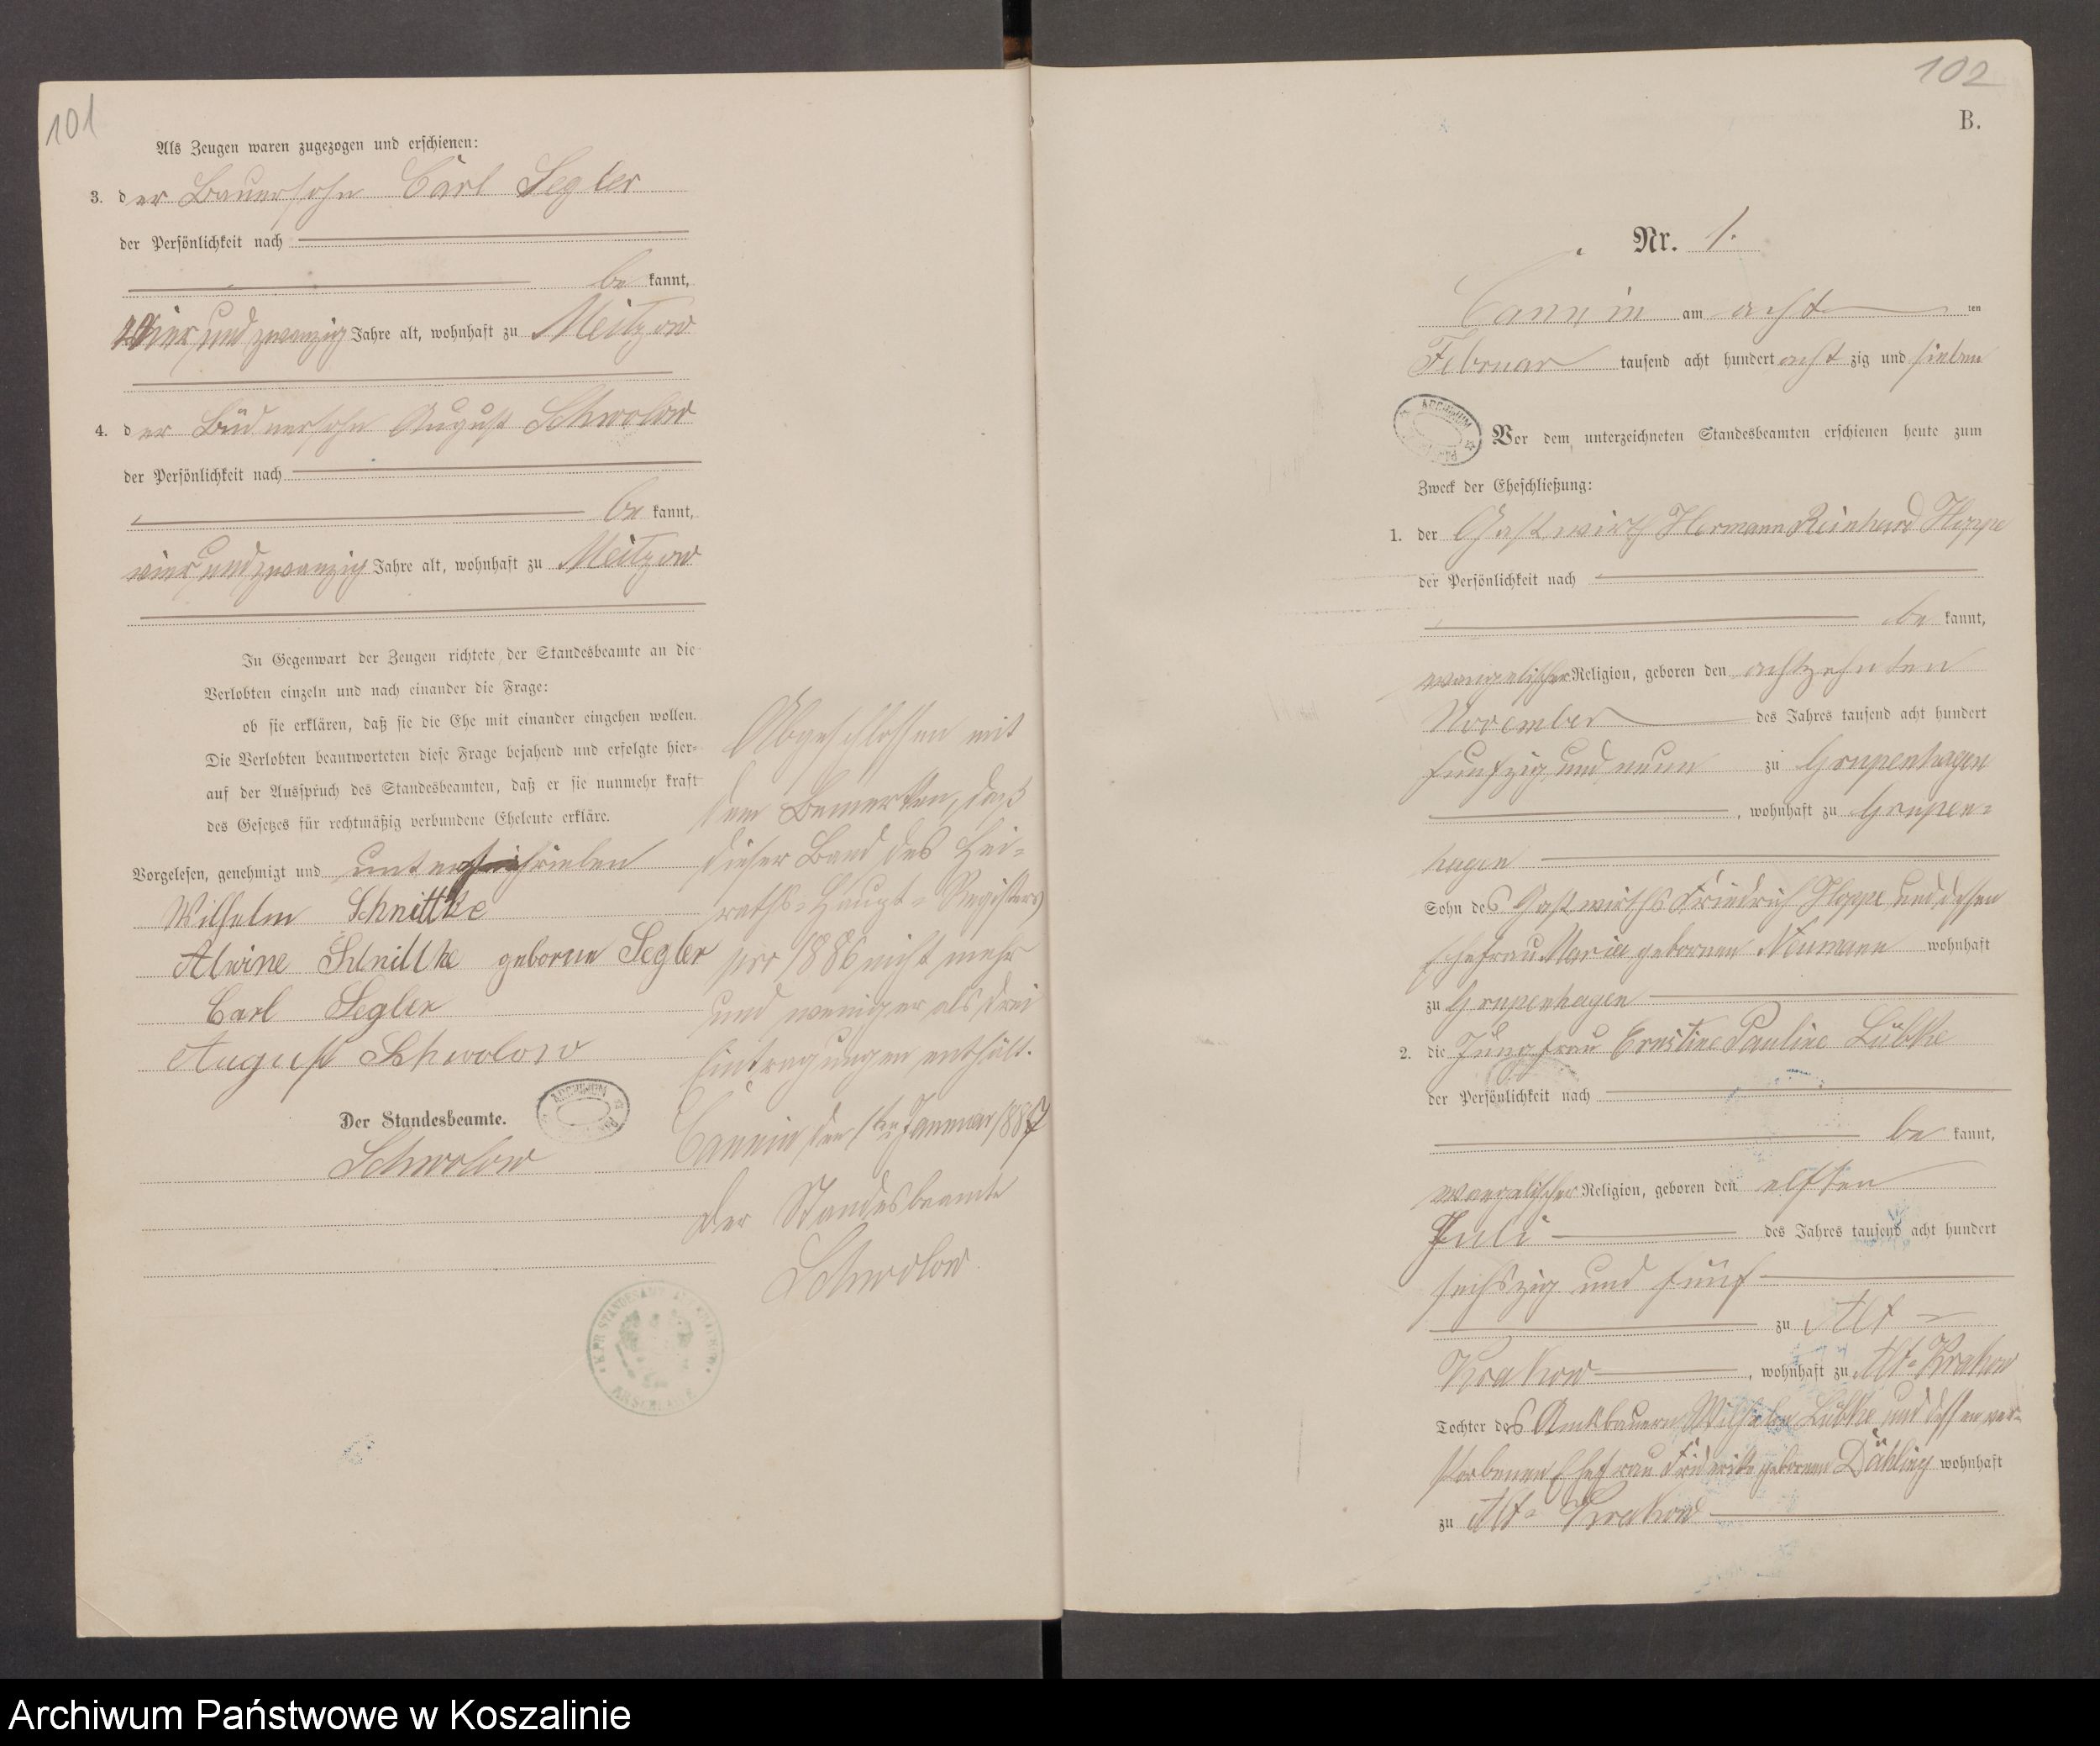 101
Als Zeugen waren zugezogen und erschienen:
3. der Bauersohn Carl Segler
der Persönlichkeit nach
be kannt,
vier und zwanzig Jahre alt, wohnhaft zu Meitzow
4. der Büdnersohn August Schwolow
der Persönlichkeit nach
be kannt,
vier und zwanzig Jahre alt, wohnhaft zu Meitzow
In Gegenwart der Zeugen richtete der Standesbeamte an die
Verlobten einzeln und nach einander die Frage:
ob sie erklären, daß sie die Ehe mit einander eingehen wollen.
Die Verlobten beantworteten diese Frage bejahend und erfolgte hier-
auf der Ausspruch des Standesbeamten, daß er sie nunmehr kraft
des Gesetzes für rechtmäßig verbundene Eheleute erkläre.
Vorgelesen, genehmigt und unterschrieben
Wilhelm Schnittke
Alwine Schnittke geborne Segler
Carl Segler
August Schwolow
Der Standesbeamte.
Schwolow
ARCHIWUM
Abgeschlossen mit
dem Bemerken, daß
dieser Band des Hei-
raths-Haupt-Registers
pro 1886 nicht mehr
und weniger als drei
Eintragungen enthält.
Cannin den 1ten Januar 1887
Der Standesbeamte
Schwolow
102
B.
Nr. 1.
Cannin am acht ten
Februar tausend acht hundert acht zig und sieben
ARCHIWUM
Vor dem unterzeichneten Standesbeamten erschienen heute zum
Zweck der Eheschließung:
1. der Gastwirth Hermann Reinhard Hoppe
der Persönlichkeit nach
be kannt,
evangelischer Religion, geboren den achtzehnten
November des Jahres tausend acht hundert
funfzig und neun zu Grupenhagen
, wohnhaft zu Grupen-
hagen
Sohn des Gastwirths Friedrich Hoppe und dessen
Ehefrau Maria gebornen Neumann wohnhaft
zu Grupenhagen
2. die Jungfrau Ernstine Pauline Lübke
der Persönlichkeit nach
be kannt,
evangelischer Religion, geboren den elften
Juli des Jahres tausend acht hundert
sechszig und fünf
zu Alt-
Krakow , wohnhaft zu Alt-Krakow
Tochter des Wilhelm Lübke und dessen ver-
storbenen Ehefrau Friderike gebornen Dähling wohnhaft
zu Alt-Krakow
Archiwum Państwowe w Koszalinie